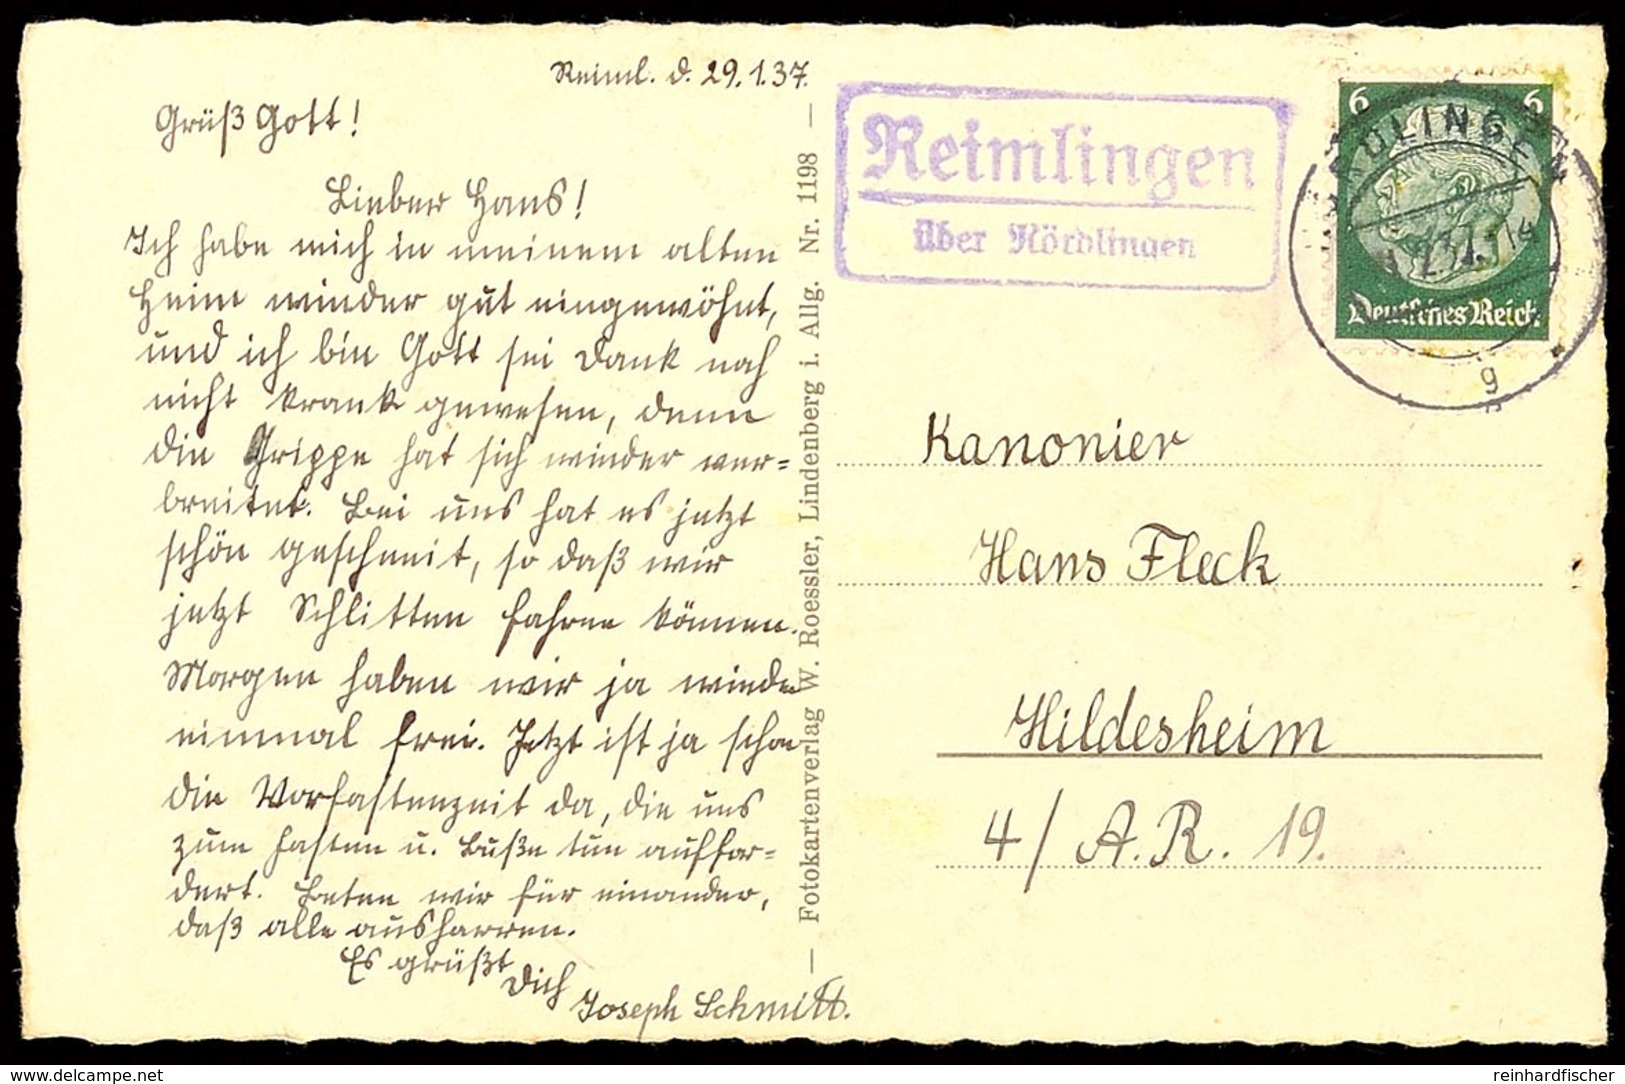 Reiml. d. 29.1.37.
Grüß Gott!
Lieber Hans!
Ich habe mich in meinem alten
Heim wieder gut eingewöhnt,
und ich bin Gott sei Dank noch
nicht krank gewesen, denn
die Grippe hat sich wieder ver=
breitet. Bei uns hat es jetzt
schön geschneit, so daß wir
jetzt Schlitten fahren können.
Morgen haben wir ja wieder
einmal frei. Jetzt ist ja schon
die Vorfastenzeit da, die uns
zum Fasten u. Buße tun auffor=
dert. Beten wir für einander,
daß alle ausharren.
Es grüßt
Dich
Joseph Schmitt.
— Fotokartenverlag W. Roessler, Lindenberg i. Allg. Nr. 1198 —
Reimlingen
über Nördlingen
6 6
Deutsches Reich
g
Kanonier
Hans Fleck
Hildesheim
4/ A.R. 19.
www.delcampe.net
reinhardfischer